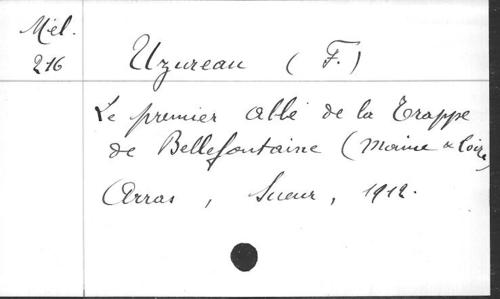 Mél.
216
Uzureau (F.)
Le premier abbé de la Trappe
de Bellefontaine (Maine & Loire)
Arras, Sueur, 1912.